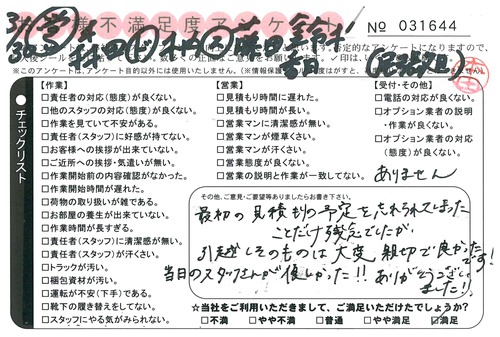 お客様不満足度アンケート
№ 031644
※このアンケートは、アンケート目的以外には使用いたしません。
チェックリスト
【作業】
□責任者の対応(態度)が良くない。
□他のスタッフの対応(態度)が良くない。
□作業を見ていて不安がある。
□責任者(スタッフ)に好感が持てない。
□お客様への挨拶が出来ていない。
□ご近所への挨拶・気遣いが無い。
□作業開始前の内容確認がなかった。
□作業開始時間が遅れた。
□荷物の取り扱いが雑である。
□お部屋の養生が出来ていない。
□作業時間が長すぎる。
□責任者(スタッフ)に清潔感が無い。
□責任者(スタッフ)が汗くさい。
□トラックが汚い。
□梱包資材が汚い。
□運転が不安(下手)である。
□靴下の履き替えをしてない。
□スタッフにやる気がみられない。
【営業】
□見積もり時間に遅れた。
□見積もり時間が長い。
□営業マンに清潔感が無い。
□営業マンが煙草くさい。
□営業マンが汗くさい。
□営業態度が良くない。
□営業の説明と作業が一致してない。
【受付・その他】
□電話の対応が良くない。
□オプション業者の説明・作業が良くない。
□オプション業者の対応(態度)が良くない。
ありません
その他、ご意見・ご要望等ありましたらお書き下さい。
最初の見積もりの予定を忘れられてしまった
ことだけ残念でしたが、
引越しそのものは大変親切で良かったです!
当日のスタッフさんが優しかった!!ありがとうございました!!
☆当社をご利用いただきまして、ご満足いただけたでしょうか?
□不満 □やや不満 □普通 □やや満足 ☑満足